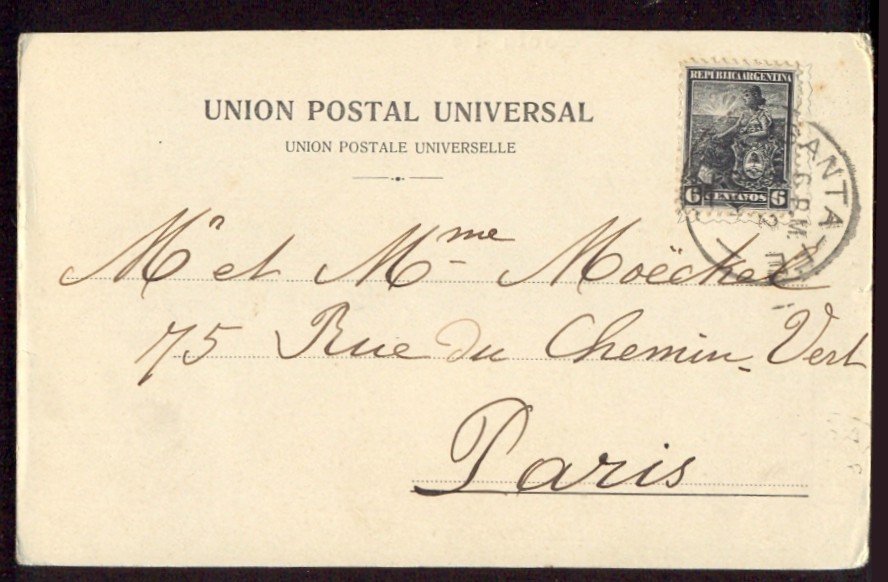 UNION POSTAL UNIVERSAL
UNION POSTALE UNIVERSELLE
REPUBLICA ARGENTINA
6 CENTAVOS 6
SANTA FE
6 P.M.
Mr et Mme Moëckel
75 Rue du Chemin-Vert
Paris